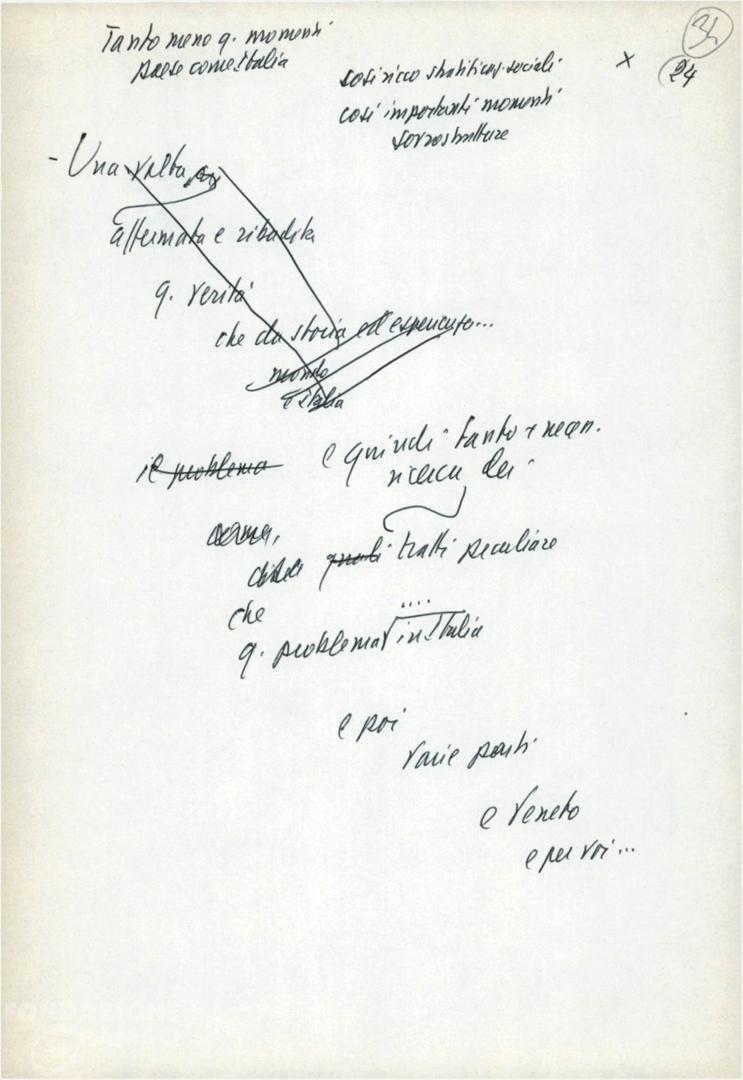 Tanto meno q. momenti
paese come Italia
così ricco stratificaz. sociali
così importanti momenti
sovrastrutture
x
34
24
- Una volta
affermata e ribadita
q. verità
che da storia ed esperienza...
mondo
e Italia
il problema
e quindi tanto + necess.
ricerca dei
quali tratti peculiare
che
....
q. problema in Italia
e poi
varie parti
e Veneto
e per voi...
FONDAZIONE